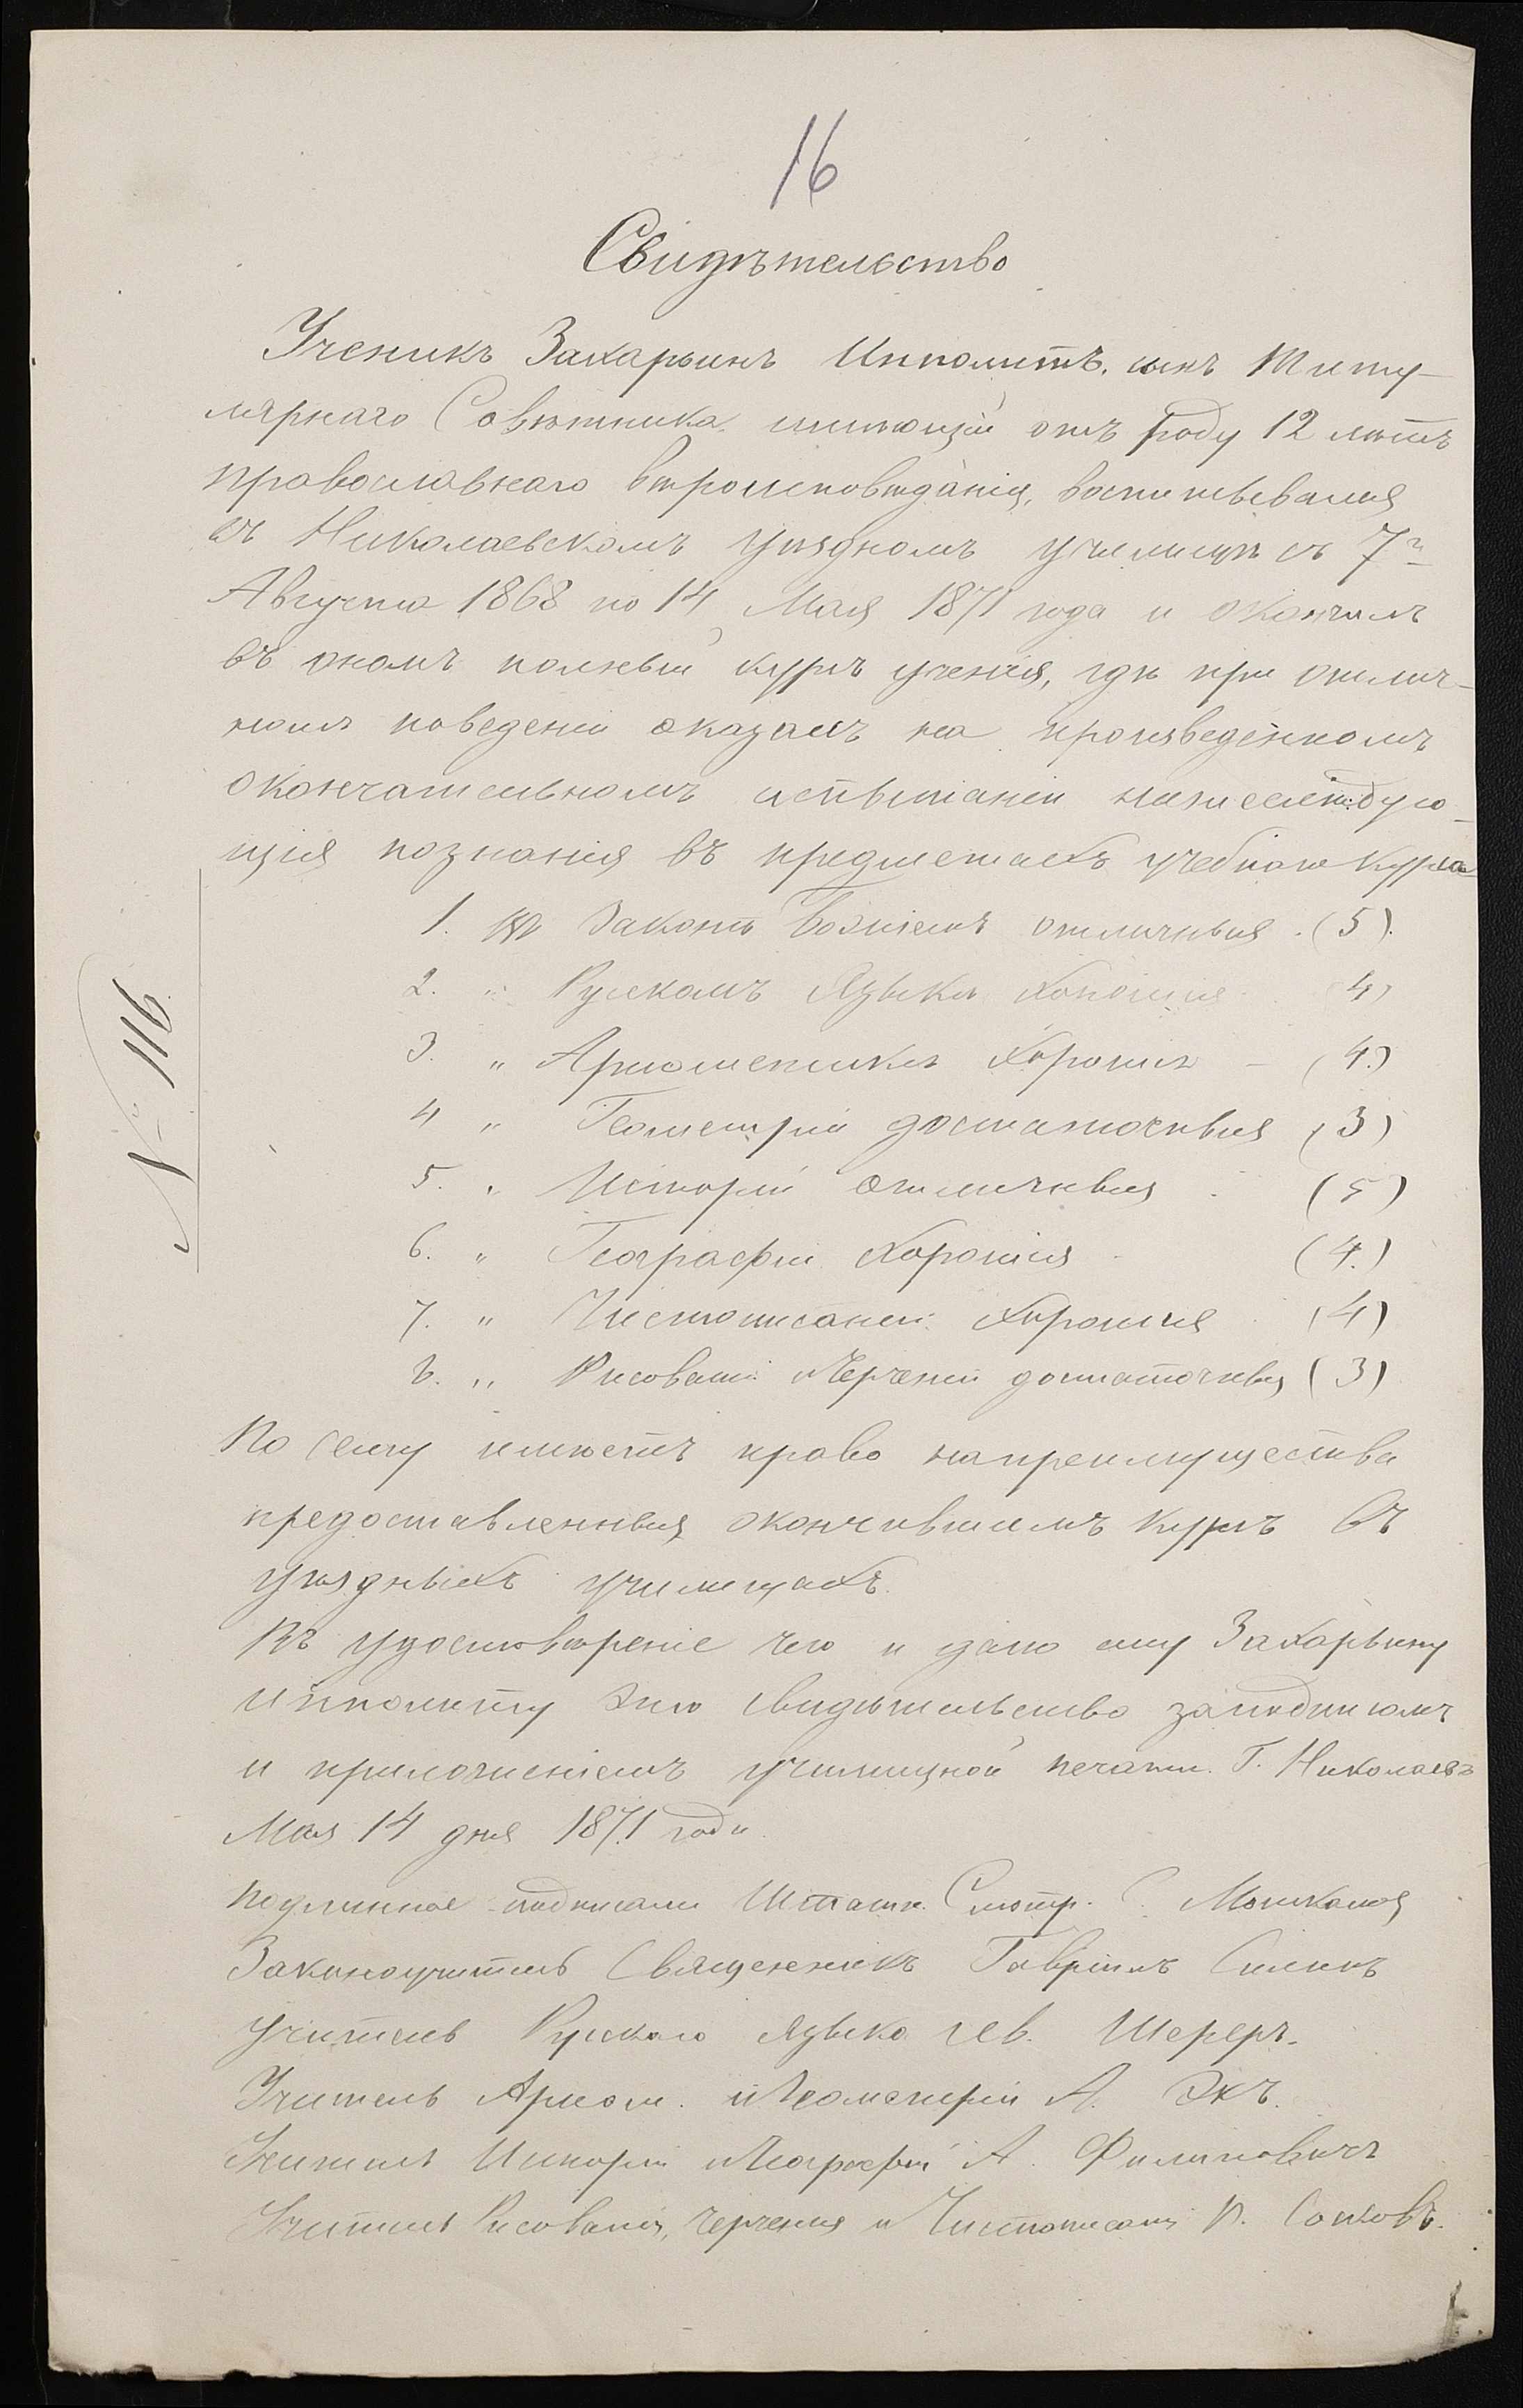 16
Свидѣтельство
Ученикъ Захарьинъ Ипполитъ, сынъ Титу-
лярнаго Совѣтника имѣющій отъ роду 12 лѣтъ
православнаго вѣроисповѣданія, воспитывался
въ Николаевскомъ уѣздномъ училищѣ съ 7го
Августа 1868 по 14 Мая 1871 года и окончилъ
въ ономъ полный курсъ ученія, гдѣ при отлич-
номъ поведеніи оказалъ на произведенномъ
окончательномъ испытаніи нижеслѣдую-
щія познанія въ предметахъ учебнаго курса
1. въ Законѣ Божіемъ отличныя (5).
2. " Русскомъ Языкѣ хорошія 4)
3. " Ариѳметикѣ хорошія - (4.)
4 " Геометріи достаточныя (3)
5. " Исторіи отличныя (5)
6. " Географіи хорошія (4.)
7. " Чистописаніи хорошія (4)
8. " Рисованіи и Черченіи достаточныя (3)
По сему имѣетъ право на преимущества
предоставленныя окончившимъ курсъ въ
уѣздныхъ училищахъ.
Въ удостовѣреніе чего и дано ему Захарьину
Ипполиту это свидѣтельство за подписомъ
и приложеніемъ училищной печати. Г. Николаевъ
Мая 14 дня 1871 года
Подлинное подписали Штатн. Смотр.
Законоучитель Священникъ Гавріилъ
Учитель Русскаго языка Лев. Шереръ.
Учитель Ариѳм. и Геометріи А. Экъ.
Учитель Исторіи и Географіи А. Филиповичъ
Учитель Рисованія, Черченія и Чистописанія П.
№ 116